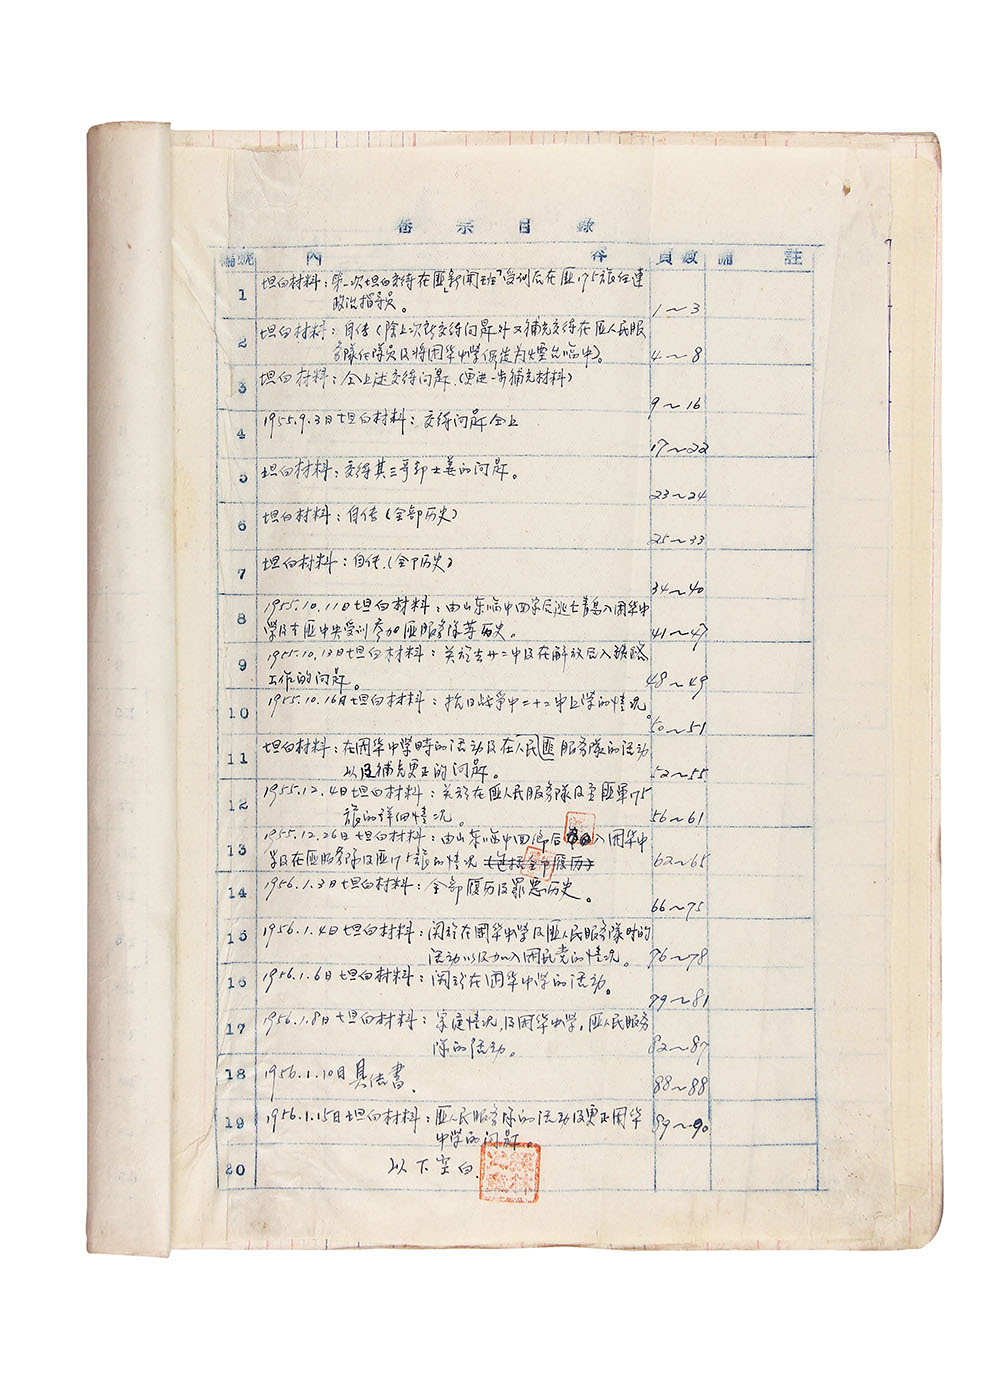 卷宗目錄
編號 內容 頁數 備註
1 坦白材料：第一次坦白交待在匪"新聞班"受训后在匪175旅任連
政治指导员。 1～3
2 坦白材料：自传（除上次所交待问题外又補充交待在匪人民服
务隊任隊员及将国华中学 临中）。 4～8
3 坦白材料：仝上述交待问题.（更進一步補充材料） 9～16
4 1955.9.3日坦白材料：交待问题仝上 17～22
5 坦白材料：交待其三哥 的问题。 23～24
6 坦白材料：自传（全部历史） 25～33
7 坦白材料：自传.（全部历史） 34～40
8 1955.10.11日坦白材料：由山东临中四 后逃亡青岛入国华中
學及 匪中央受训参加匪服务隊等历史。 41～47
9 1955.10.13日坦白材料：关於去廿二中及在解放后入鉄路
工作的问题。 48～49
10 1955.10.16日坦白材料：抗日战争中二十二中上学的情况。 50～51
11 坦白材料：在国华中学時的活动及在人民匪服务隊的活动
以及補充更正的问题。 52～55
12 1955.12.4日坦白材料：关於在匪人民服务隊及至匪軍175
旅的详细情况。 56～61
13 1955.12.26日坦白材料：由山东临中四 后 入国华中
学及在匪服务隊及匪175旅的情况（包括全部履历） 62～65
14 1956.1.3日坦白材料：全部履历及罪恶历史。 66～75
15 1956.1.4日坦白材料：関於在国华中学及匪人民服务隊时的
活动以及加入国民党的情况。 76～78
16 1956.1.6日坦白材料：関於在国华中学的活动。 79～81
17 1956.1.8日坦白材料：家庭情况,及国华中学，匪人民服务
隊的活动。 82～87
18 1956.1.10日具结書. 88～88
19 1956.1.15日坦白材料：匪人民服务隊的活动及更正国华
中学的问题。 89～90
20 以下空白.